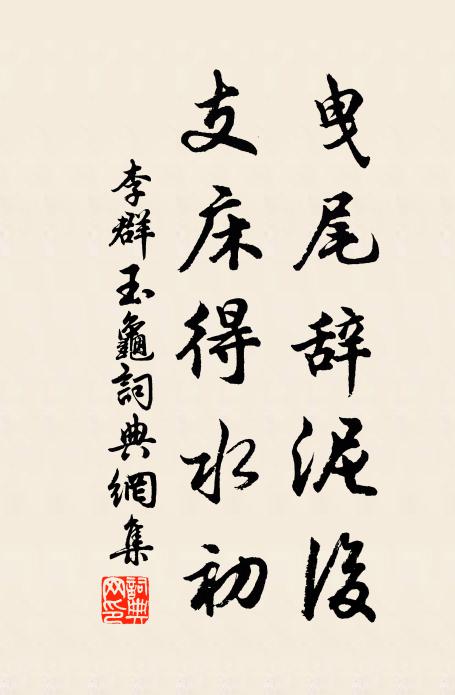 曳尾辞泥後
支床得水初
李群玉龜詞典網集
詞典网印